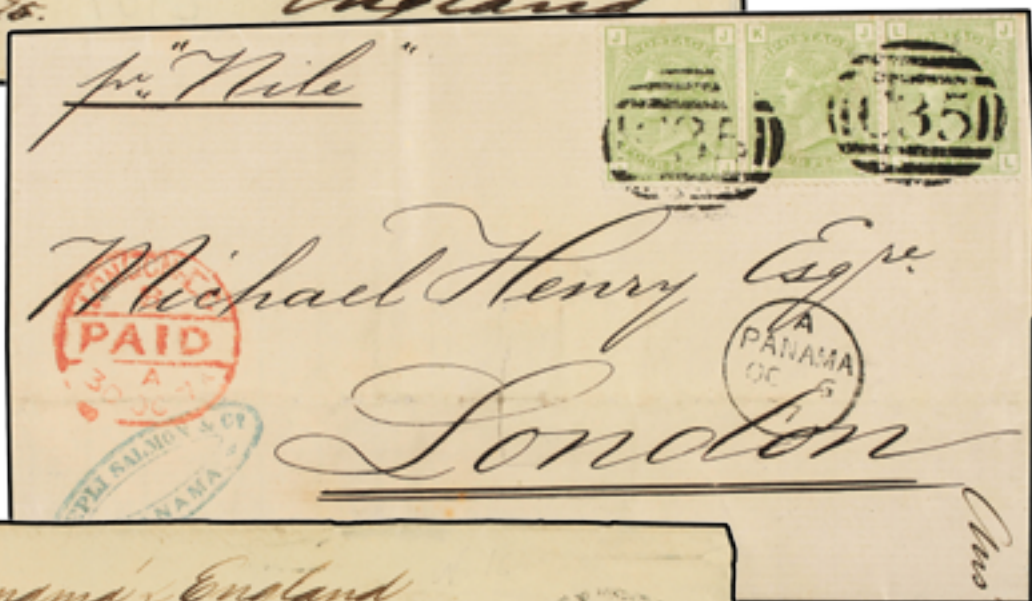 England
pr. "Nile"
J J K J L J
C35 C35
L
Michael Henry Esqre
London
PAID
A
30 OC 7
A
PANAMA
OC 5
SALMON & Co
PANAMA
England